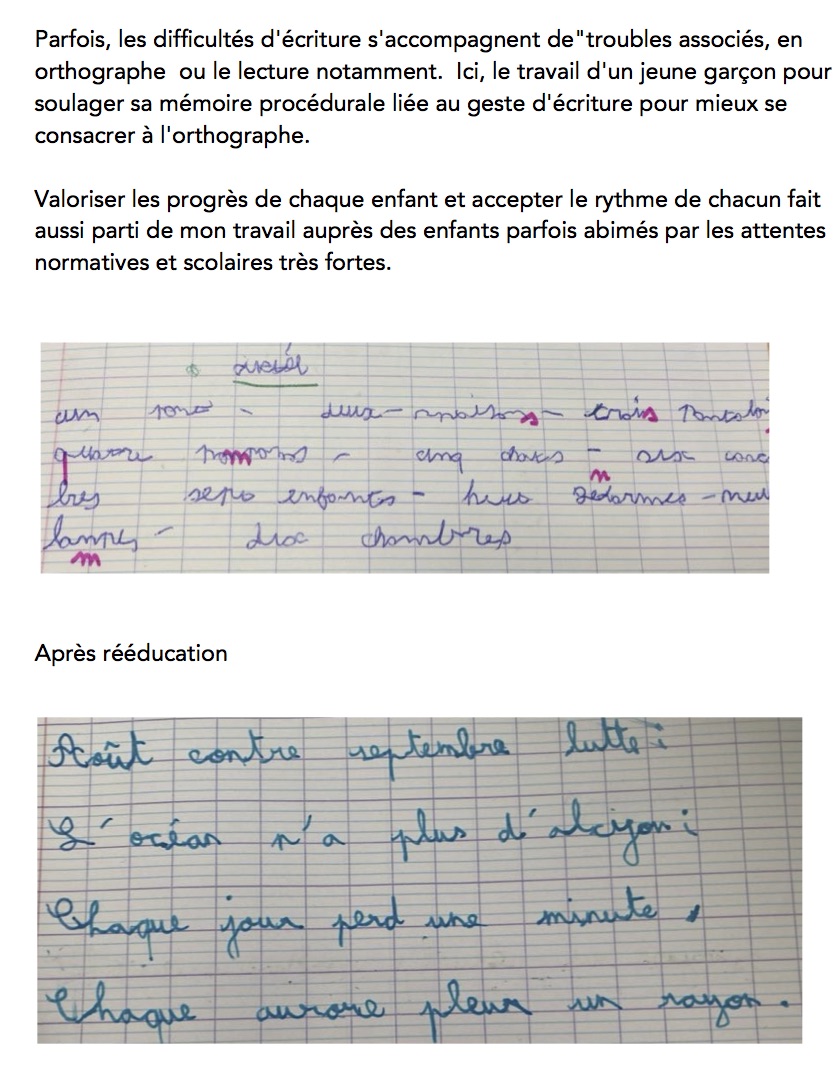 Parfois, les difficultés d'écriture s'accompagnent de"troubles associés, en
orthographe ou le lecture notamment. Ici, le travail d'un jeune garçon pour
soulager sa mémoire procédurale liée au geste d'écriture pour mieux se
consacrer à l'orthographe.
Valoriser les progrès de chaque enfant et accepter le rythme de chacun fait
aussi parti de mon travail auprès des enfants parfois abimés par les attentes
normatives et scolaires très fortes.
un - deux - maisons - trois
pompoms - cinq - six
bres enfants - gedarmes -
n
lampes - chambres
m
Après rééducation
Août contre septembre lutte ;
L'océan n'a plus d'alcyon ;
Chaque jour perd une minute,
Chaque aurore pleur un rayon.